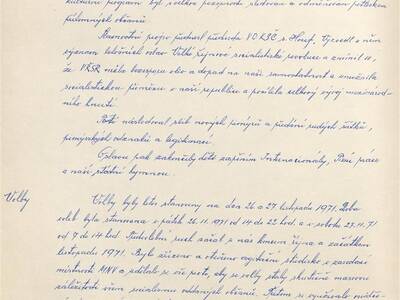 kulturní program byl s velkou pozorností sledován a odměňován potleskem
přítomných občanů.
Slavnostní projev přednesl předseda VO KSČ s. Uvedl v něm
význam letošních oslav Velké říjnové socialistické revoluce a zmínil se,
že VŘSR měla bezesporu vliv a dopad na naši samostatnost a umožnila
socialistickou přeměnu v naší republice a posílila celkový vývoj mezinárod-
ního hnutí.
Poté následoval slib nových pionýrů a předání rudých šátků,
pionýrských odznaků a legitimací.
Oslavu pak zakončily děti zapěním Internacionály, Písní práce
a naší státní hymnou.
Volby
Volby byly letos stanoveny na den 26. a 27. listopadu 1971. Doba
voleb byla stanovena v pátek 26. 11. 1971 od 14 do 22 hod. a v sobotu 27. 11. 71
od 7 do 14 hod. Předvolební ruch začal u nás koncem října a začátkem
listopadu 1971. Bylo zřízeno a otevřeno agitační středisko v zasedací
místnosti MNV a udělalo se vše proto, aby se volby staly skutečně masovou
záležitostí všem socialismu oddaných občanů. Přitom se